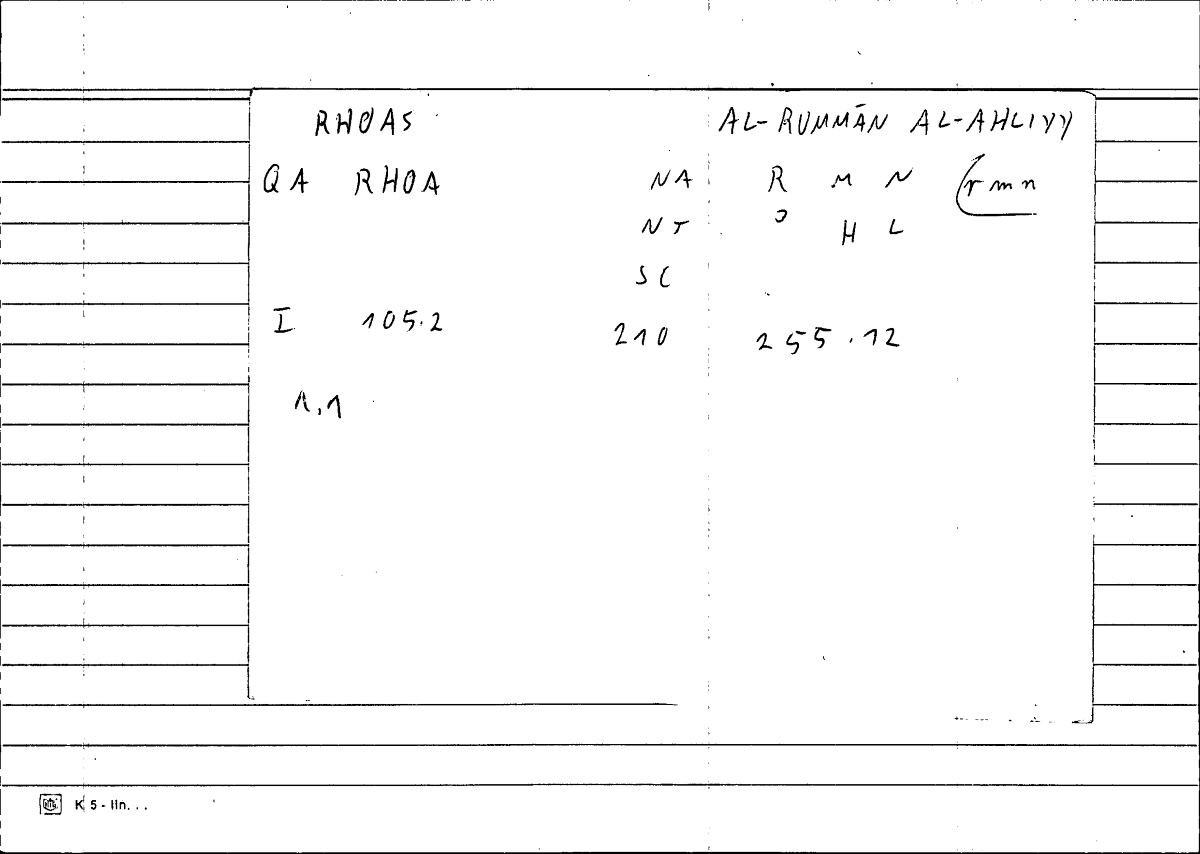 RHOAS AL-RUMMĀN AL-AHLIYY
QA RHOA NA R M N (rmn
NT ʾ H L
SC
I 105.2 210 255.12
1,1
K 5 - lin. . .